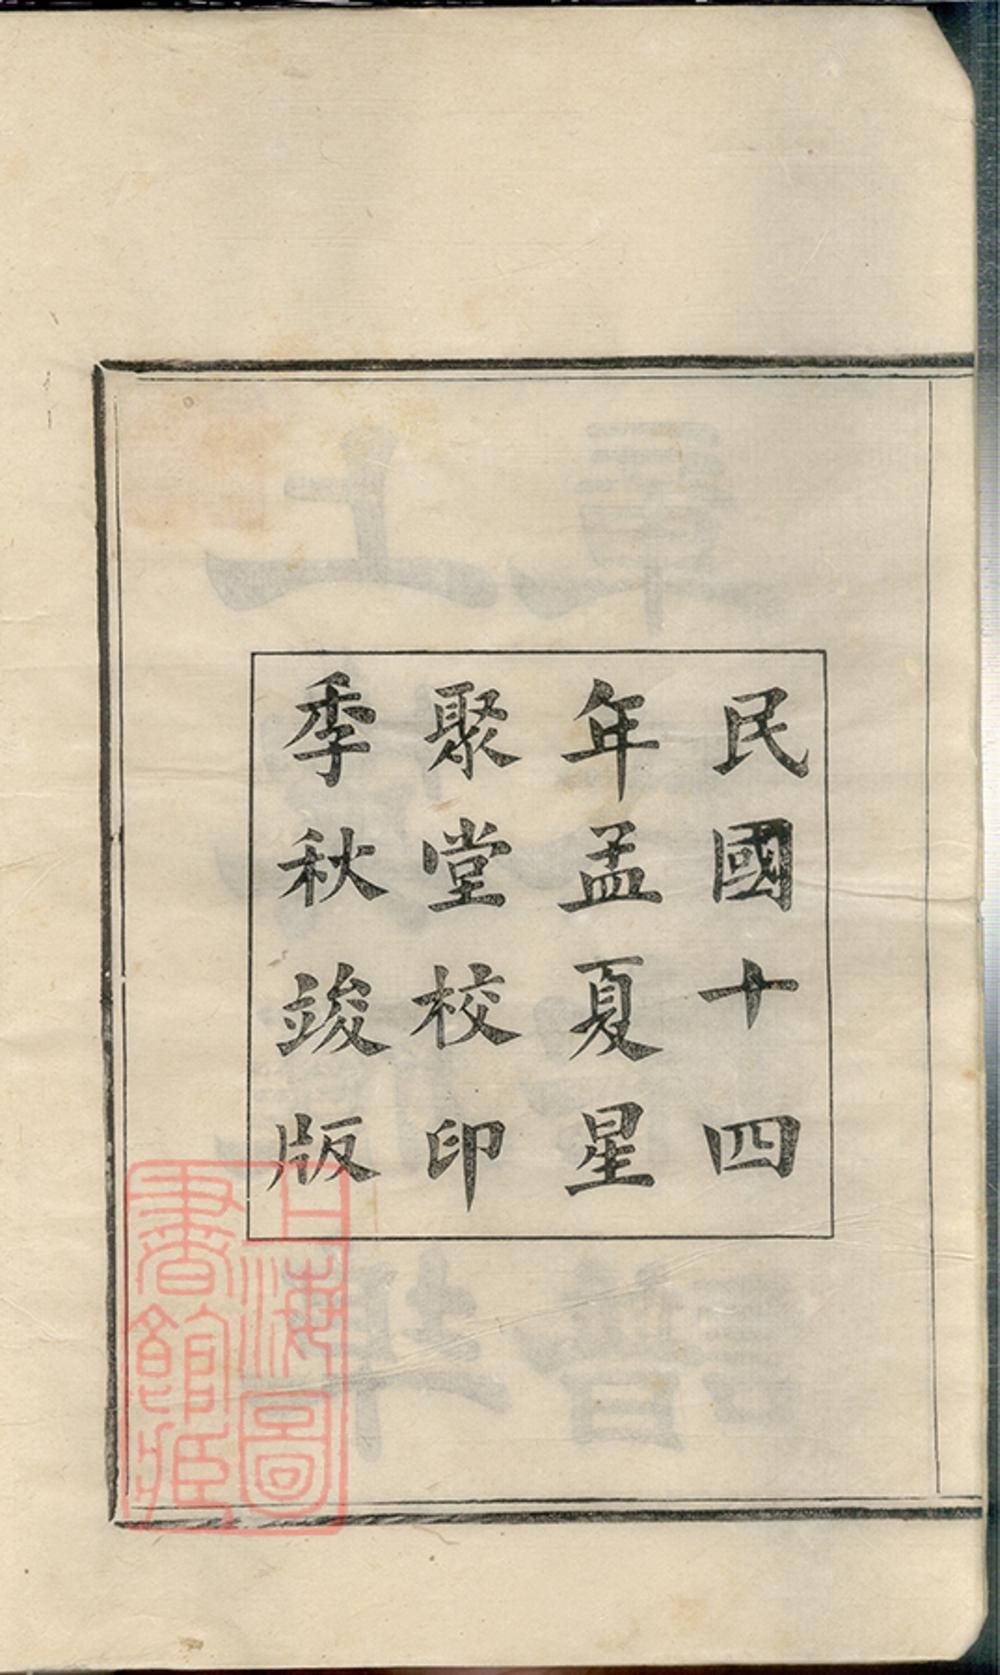 民國十四
年孟夏星
聚堂校印
季秋竣版
上海圖
書館藏